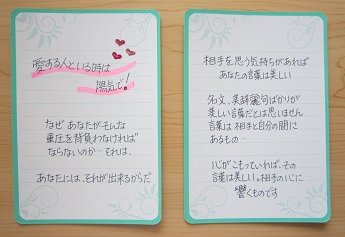 愛する人といる時は
陽気で!
なぜ あなたがそんな
重圧を背負わなければ
ならないのか…それは、
あなたには、それが出来るからだ
相手を思う気持ちがあれば
あなたの言葉は美しい
名文、美辞麗句ばかりが
美しい言葉だとは思いません
言葉は相手と自分の間に
あるもの…
心がこもっていれば、その
言葉は美しい。相手の心に
響くものです